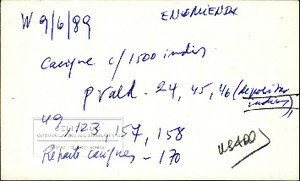 W 9/6/89 ENCOMIENDA
Cacique c/ 1500 indios
p Vald - 24, 45, 46 (depositar
indios),
49, 123, 157, 158
Reparte caciques - 170